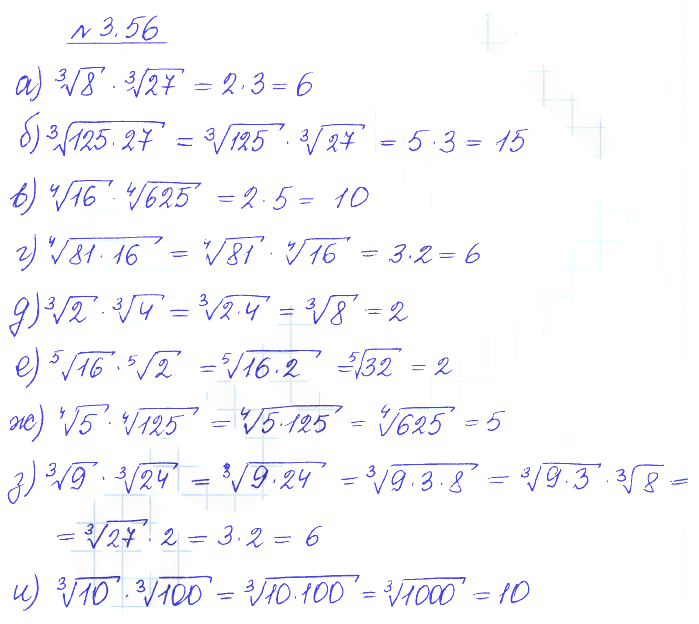 № 3.56
а) ∛8 · ∛27 = 2·3 = 6
б) ∛(125·27) = ∛125 · ∛27 = 5·3 = 15
в) ∜16 · ∜625 = 2·5 = 10
г) ∜(81·16) = ∜81 · ∜16 = 3·2 = 6
д) ∛2 · ∛4 = ∛(2·4) = ∛8 = 2
е) ⁵√16 · ⁵√2 = ⁵√(16·2) = ⁵√32 = 2
ж) ∜5 · ∜125 = ∜(5·125) = ∜625 = 5
з) ∛9 · ∛24 = ∛(9·24) = ∛(9·3·8) = ∛(9·3) · ∛8 =
= ∛27 · 2 = 3·2 = 6
и) ∛10 · ∛100 = ∛(10·100) = ∛1000 = 10